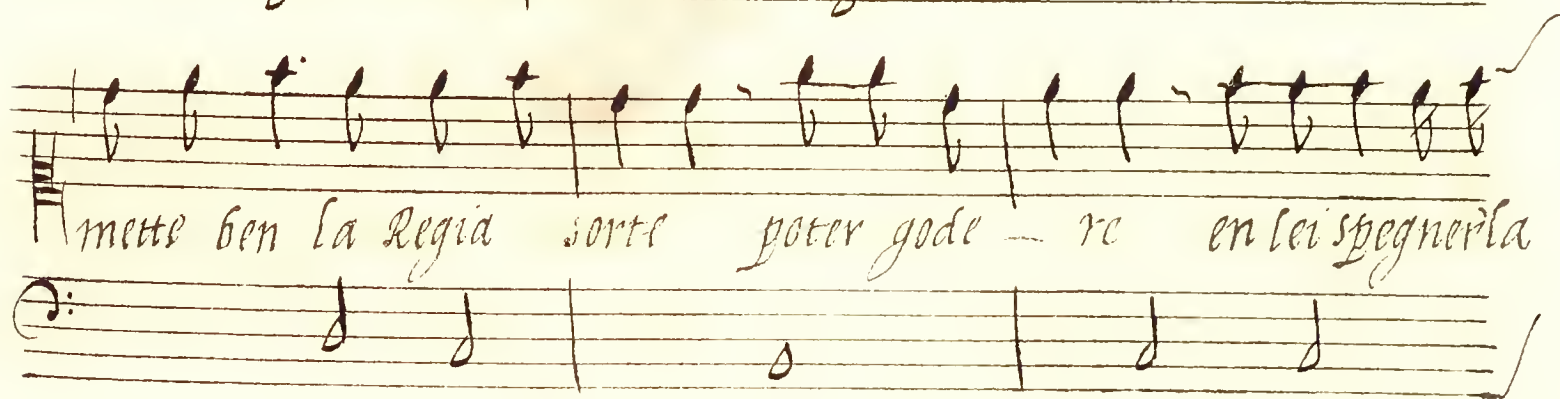 mette ben la Regia sorte poter gode - re en lei spegner la